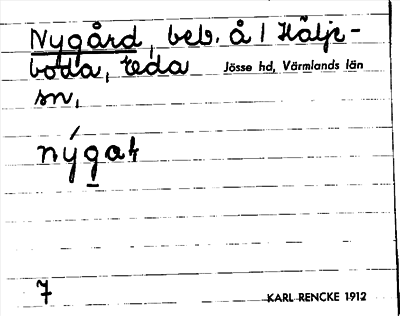 Nygård, beb. å 1 Hälje-
boda, Eda Jösse hd, Värmlands län
sn,
nýgaṭ
7
KARL RENCKE 1912